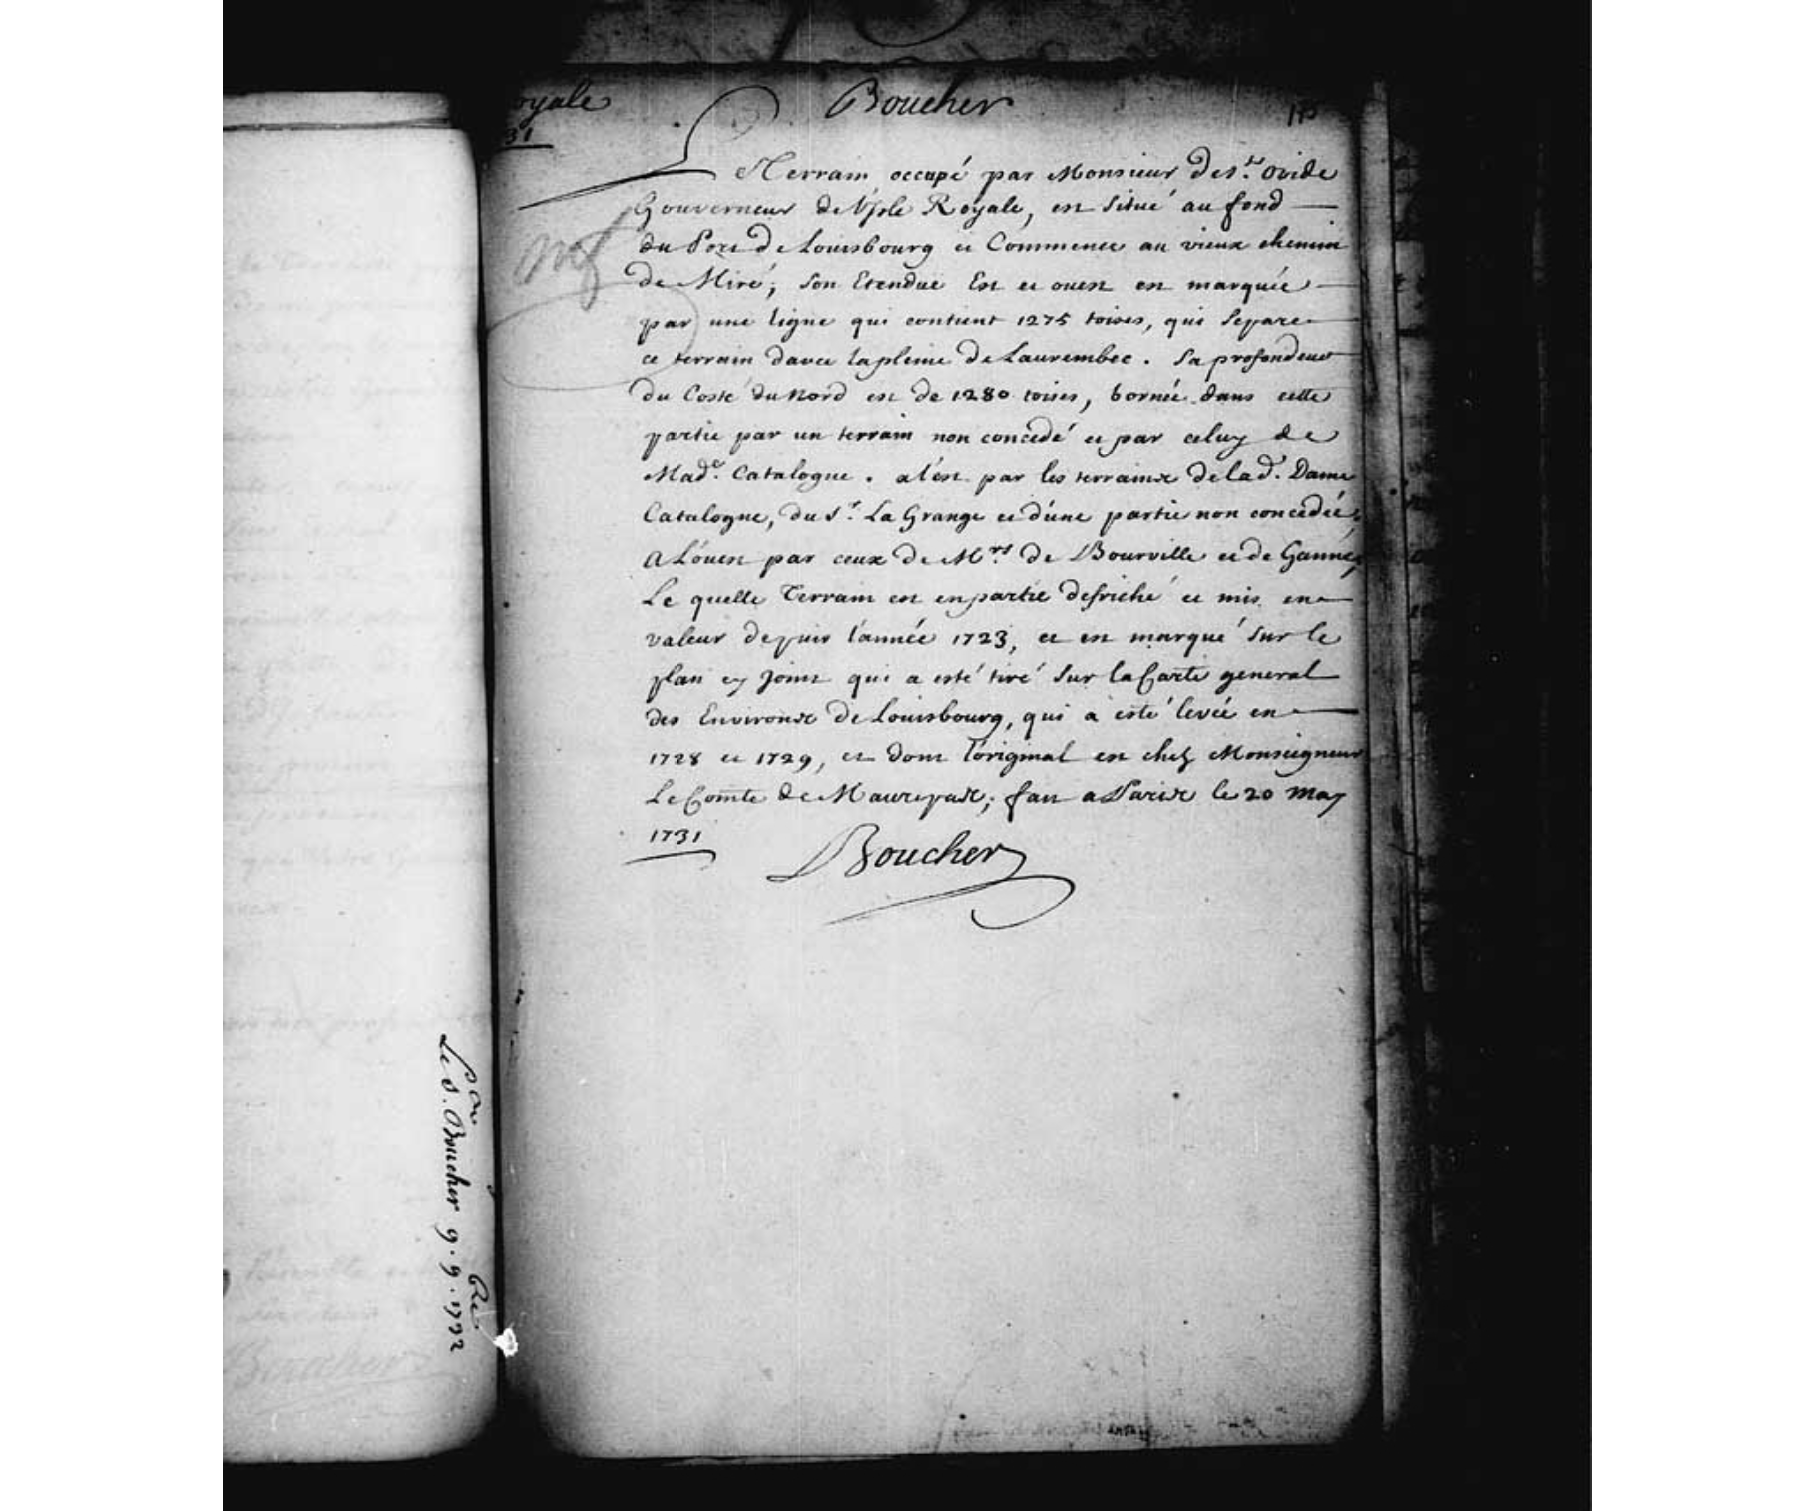 oyale
31
Boucher
Terrain occupé par Monsieur de St. Ovide
Gouverneur de l'Isle Royale, est Situé au fond
du Port de Louisbourg et Commence au vieux chemin
de Miré; Son Etendue Est et ouest est marquée
par une ligne qui contient 1275 toises, qui Separe
ce terrain davec la pleine de Laurembec. Sa profondeur
du Costé du Nord est de 1280 toises, bornée dans cette
partie par un terrain non concedé et par celuy de
Made. Catalogne. a l'est par les terrainx de lad. Dame
Catalogne, du Sr. La Grange et d'une partie non concedée,
A L'ouest par ceux de Mrs. de Bourville et de Ganne,
Le quelle Terrain est en partie defriché et mis en
valeur depuis l'année 1723, et est marqué Sur le
plan cy joint qui a esté tiré Sur la Carte general
des Environx de Louisbourg, qui a esté levée en
1728 et 1729, et dont l'original est chez Monseigneur
Le Comte de Maurepax; fait a Parix le 20 May
1731
Boucher
Le S. Boucher 9. 9. 1722